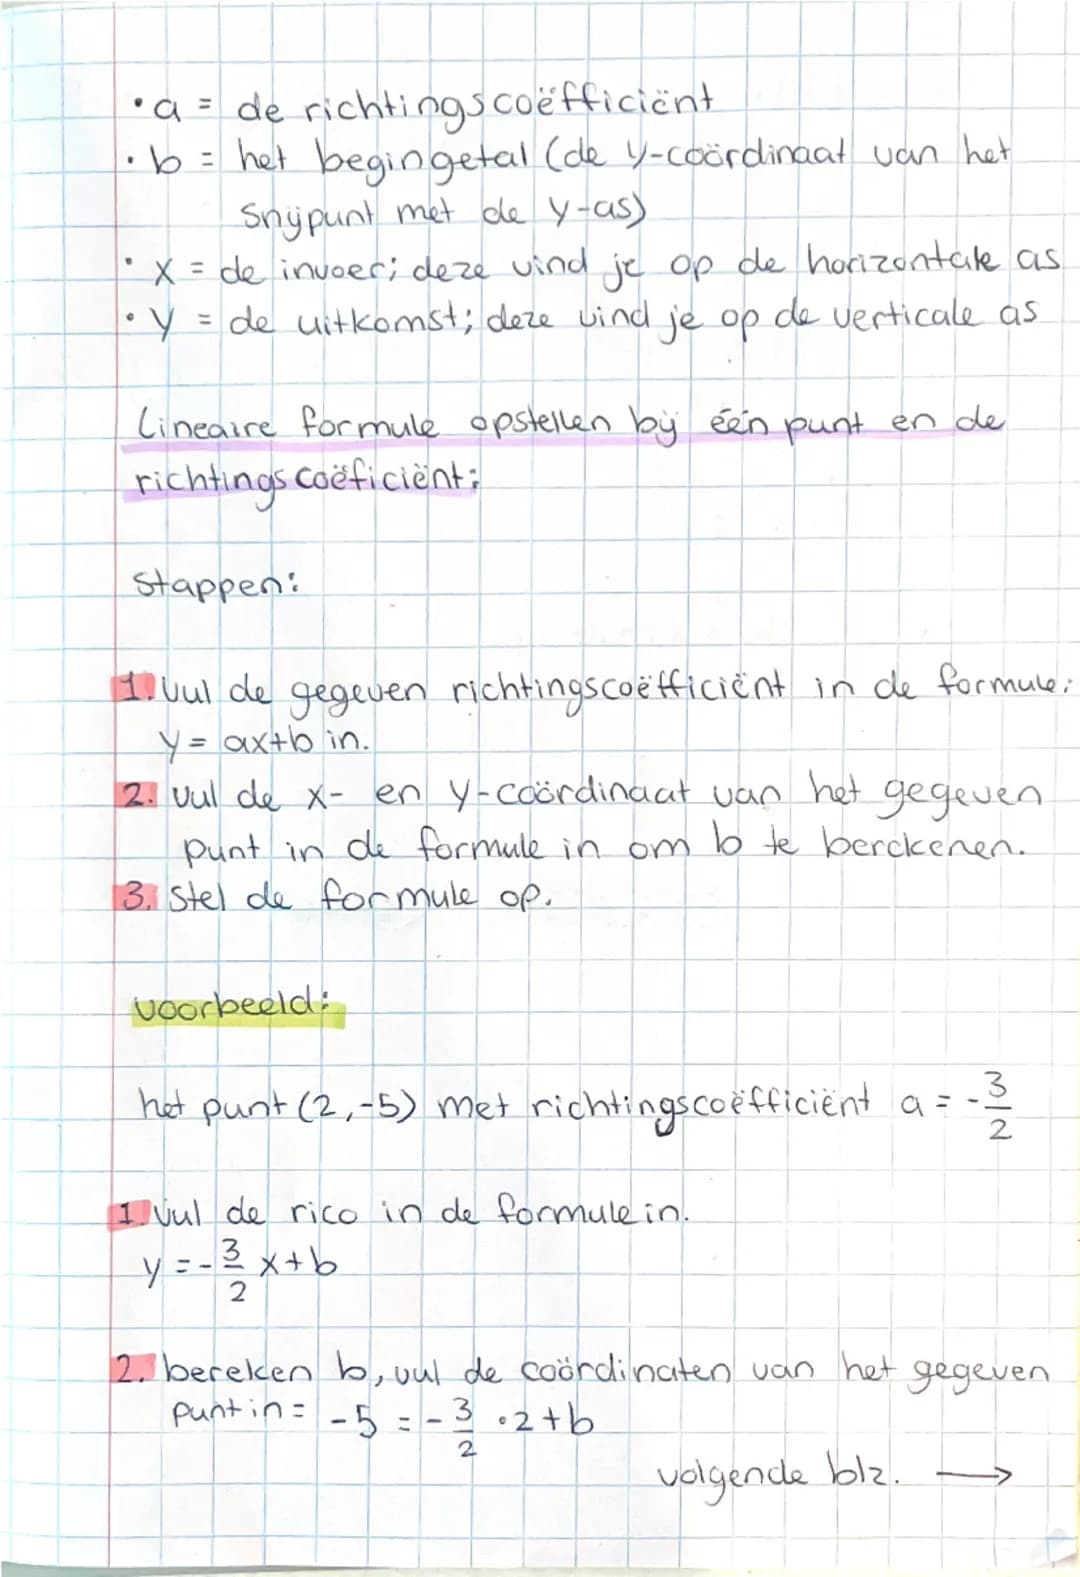 • a = de richtingscoëfficiënt
• b = het begingetal (de y-coördinaat van het
snijpunt met de y-as)
• x = de invoer; deze vind je op de horizontale as
• y = de uitkomst; deze vind je op de verticale as
Lineaire formule opstellen bij één punt en de
richtingscoëficiënt:
Stappen:
1. Vul de gegeven richtingscoëfficiënt in de formule:
y = ax+b in.
2. vul de x- en y-coördinaat van het gegeven
punt in de formule in om b te berekenen.
3. Stel de formule op.
voorbeeld:
het punt (2,-5) met richtingscoëfficiënt a = -3/2
1 Vul de rico in de formule in.
y = -3/2 x+b
2. bereken b, vul de coördinaten van het gegeven
punt in = -5 = -3/2 •2+b
volgende blz. →